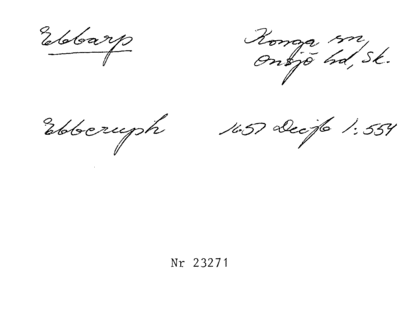 Ebbarp
Konga sn,
Onsjö hd, Sk.
Ebberuph 1657 DecJb 1:554
Nr 23271